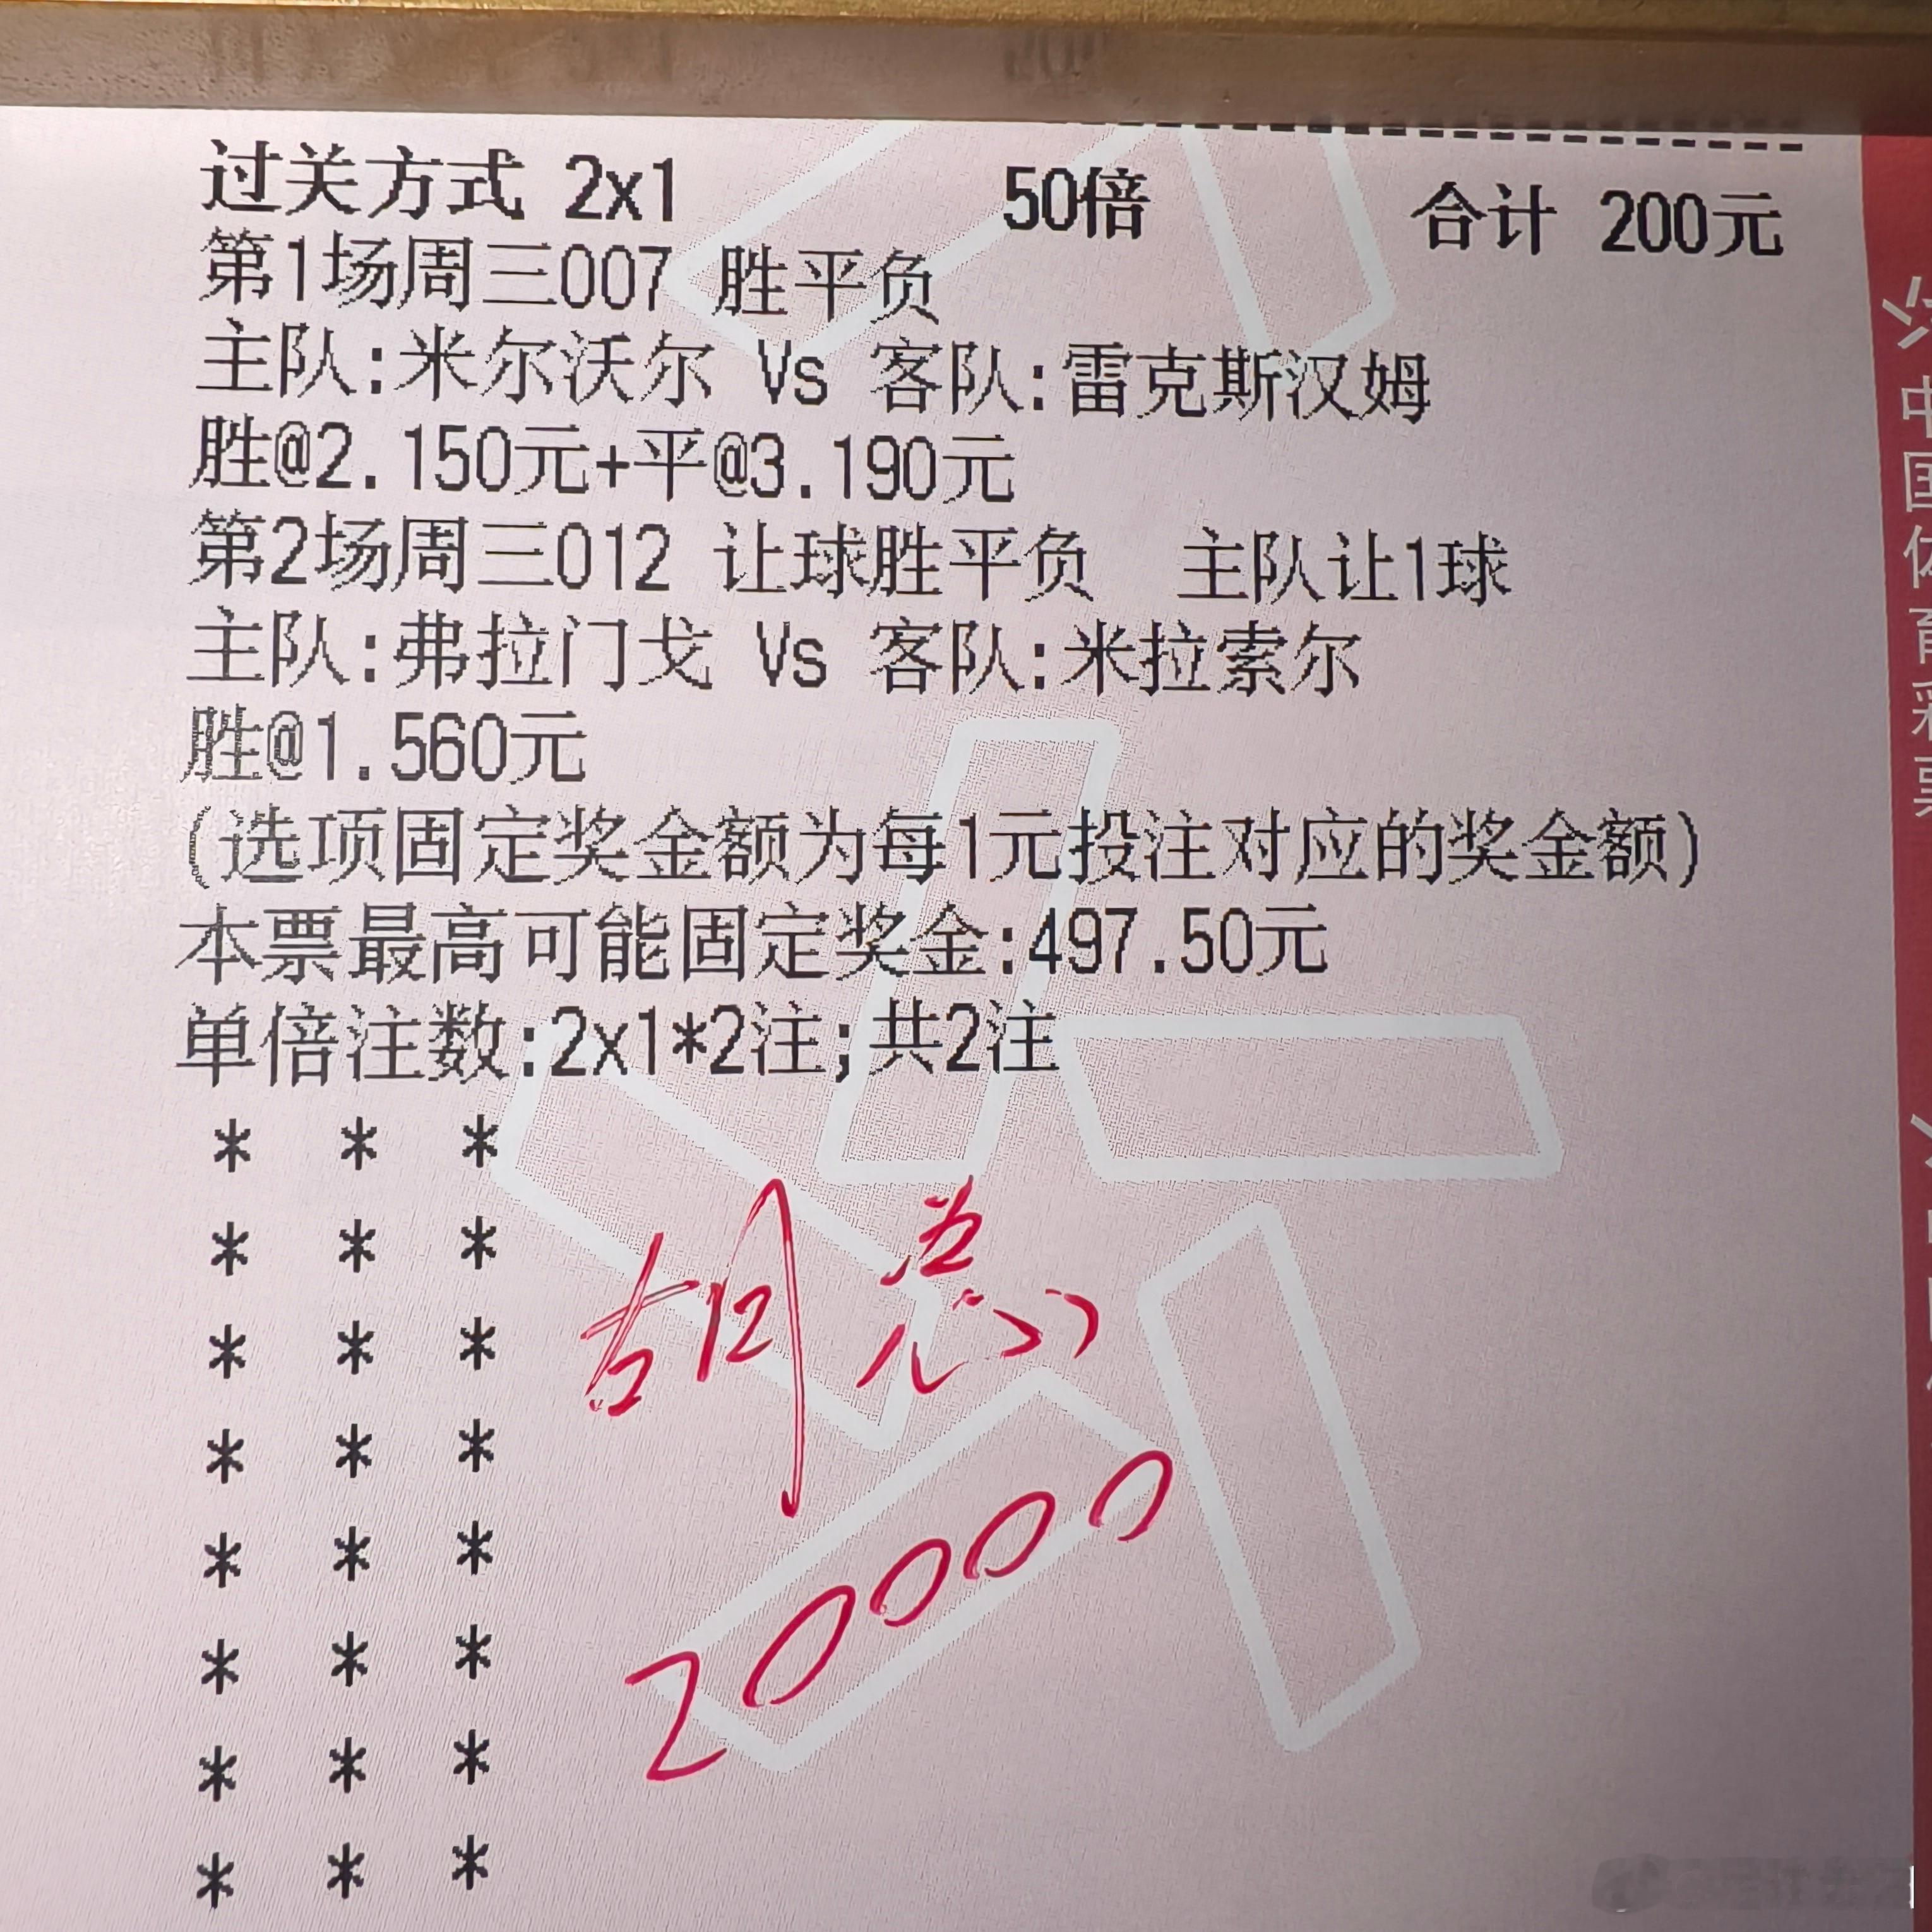 过关方式 2x1 50倍 合计 200元
第1场周三007 胜平负
主队:米尔沃尔 Vs 客队:雷克斯汉姆
胜@2.150元+平@3.190元
第2场周三012 让球胜平负 主队让1球
主队:弗拉门戈 Vs 客队:米拉索尔
胜@1.560元
(选项固定奖金额为每1元投注对应的奖金额)
本票最高可能固定奖金:497.50元
单倍注数:2x1*2注;共2注
* * *
* * *
* * *
* * *
* * *
* * *
* * *
* * *
胡总
20000
中国体育彩票